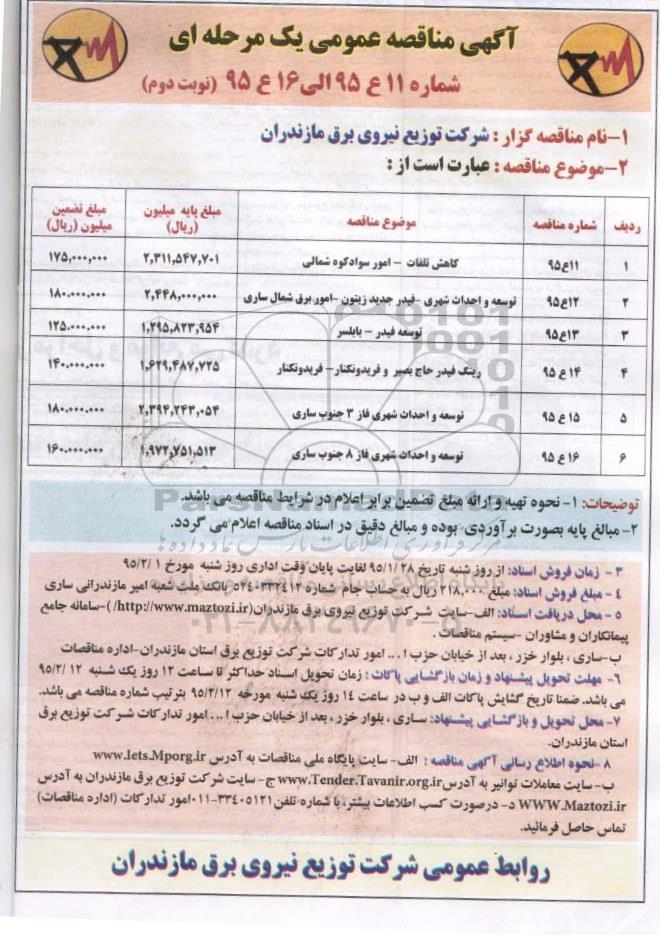 آگهی مناقصه عمومی یک مرحله ای
شماره ۱۱ ع ۹۵ الی ۱۶ ع ۹۵ (نوبت دوم)
۱-نام مناقصه گزار : شرکت توزیع نیروی برق مازندران
۲-موضوع مناقصه : عبارت است از :
ردیف شماره مناقصه موضوع مناقصه مبلغ پایه میلیون (ریال) مبلغ تضمین میلیون (ریال)
۱ ۱۱ع۹۵ کاهش تلفات – امور سوادکوه شمالی ۲,۳۱۱,۵۴۷,۷۰۱ ۱۷۵,۰۰۰,۰۰۰
۲ ۱۲ع۹۵ توسعه و احداث شهری –فیدر جدید زیتون –امور برق شمال ساری ۲,۴۴۸,۰۰۰,۰۰۰ ۱۸۰.۰۰۰.۰۰۰
۳ ۱۳ع۹۵ توسعه فیدر – بابلسر ۱,۲۹۵,۸۲۳,۹۵۴ ۱۲۵.۰۰۰.۰۰۰
۴ ۱۴ ع ۹۵ رینگ فیدر حاج بصیر و فریدونکنار– فریدونکنار ۱,۶۲۹,۴۸۷,۷۲۵ ۱۴۰.۰۰۰.۰۰۰
۵ ۱۵ ع ۹۵ توسعه و احداث شهری فاز ۳ جنوب ساری ۲,۳۹۴,۲۴۳,۰۵۴ ۱۸۰.۰۰۰.۰۰۰
۶ ۱۶ ع ۹۵ توسعه و احداث شهری فاز ۸ جنوب ساری ۱,۹۷۲,۷۵۱,۵۱۳ ۱۶۰.۰۰۰.۰۰۰
توضیحات: ۱- نحوه تهیه و ارائه مبلغ تضمین برابر اعلام در شرایط مناقصه می باشد.
۲- مبالغ پایه بصورت برآوردی بوده و مبالغ دقیق در اسناد مناقصه اعلام می گردد.
۳- زمان فروش اسناد: از روز شنبه تاریخ ۹۵/۱/۲۸ لغایت پایان وقت اداری روز شنبه مورخ ۹۵/۲/۱
۴ - مبلغ فروش اسناد: مبلغ ۲۱۸,۰۰۰ ریال به حساب جام شماره ۵۲۴۰۳۳۲۴۱۲ بانک ملت شعبه امیر مازندرانی ساری
۵ - محل دریافت اسناد: الف-سایت شرکت توزیع نیروی برق مازندران(http://www.maztozi.ir/ )-سامانه جامع
پیمانکاران و مشاوران -سیستم مناقصات .
ب-ساری ، بلوار خزر ، بعد از خیابان حزب ا... امور تدارکات شرکت توزیع برق استان مازندران-اداره مناقصات
۶- مهلت تحویل پیشنهاد و زمان بازگشایی پاکات : زمان تحویل اسناد حداکثر تا ساعت ۱۲ روز یک شنبه ۹۵/۲/۱۲
می باشد. ضمنا تاریخ گشایش پاکات الف و ب در ساعت ۱۴ روز یک شنبه مورخه ۹۵/۲/۱۲ بترتیب شماره مناقصه می باشد.
۷-محل تحویل و بازگشایی پیشنهاد: ساری ، بلوار خزر ، بعد از خیابان حزب ا... امور تدارکات شرکت توزیع برق
استان مازندران.
۸ -نحوه اطلاع رسانی آگهی مناقصه : الف- سایت پایگاه ملی مناقصات به آدرس www.Iets.Mporg.ir
ب- سایت معاملات توانیر به آدرس www.Tender.Tavanir.org.ir ج- سایت شرکت توزیع برق مازندران به آدرس
WWW.Maztozi.ir د- درصورت کسب اطلاعات بیشتر، با شماره تلفن ۰۱۱-۳۳۴۰۵۱۲۱ امور تدارکات (اداره مناقصات)
تماس حاصل فرمائید.
روابط عمومی شرکت توزیع نیروی برق مازندران
ParsNamadData
۰۲۱-۸۸۳۴۹۶۷۰-۵